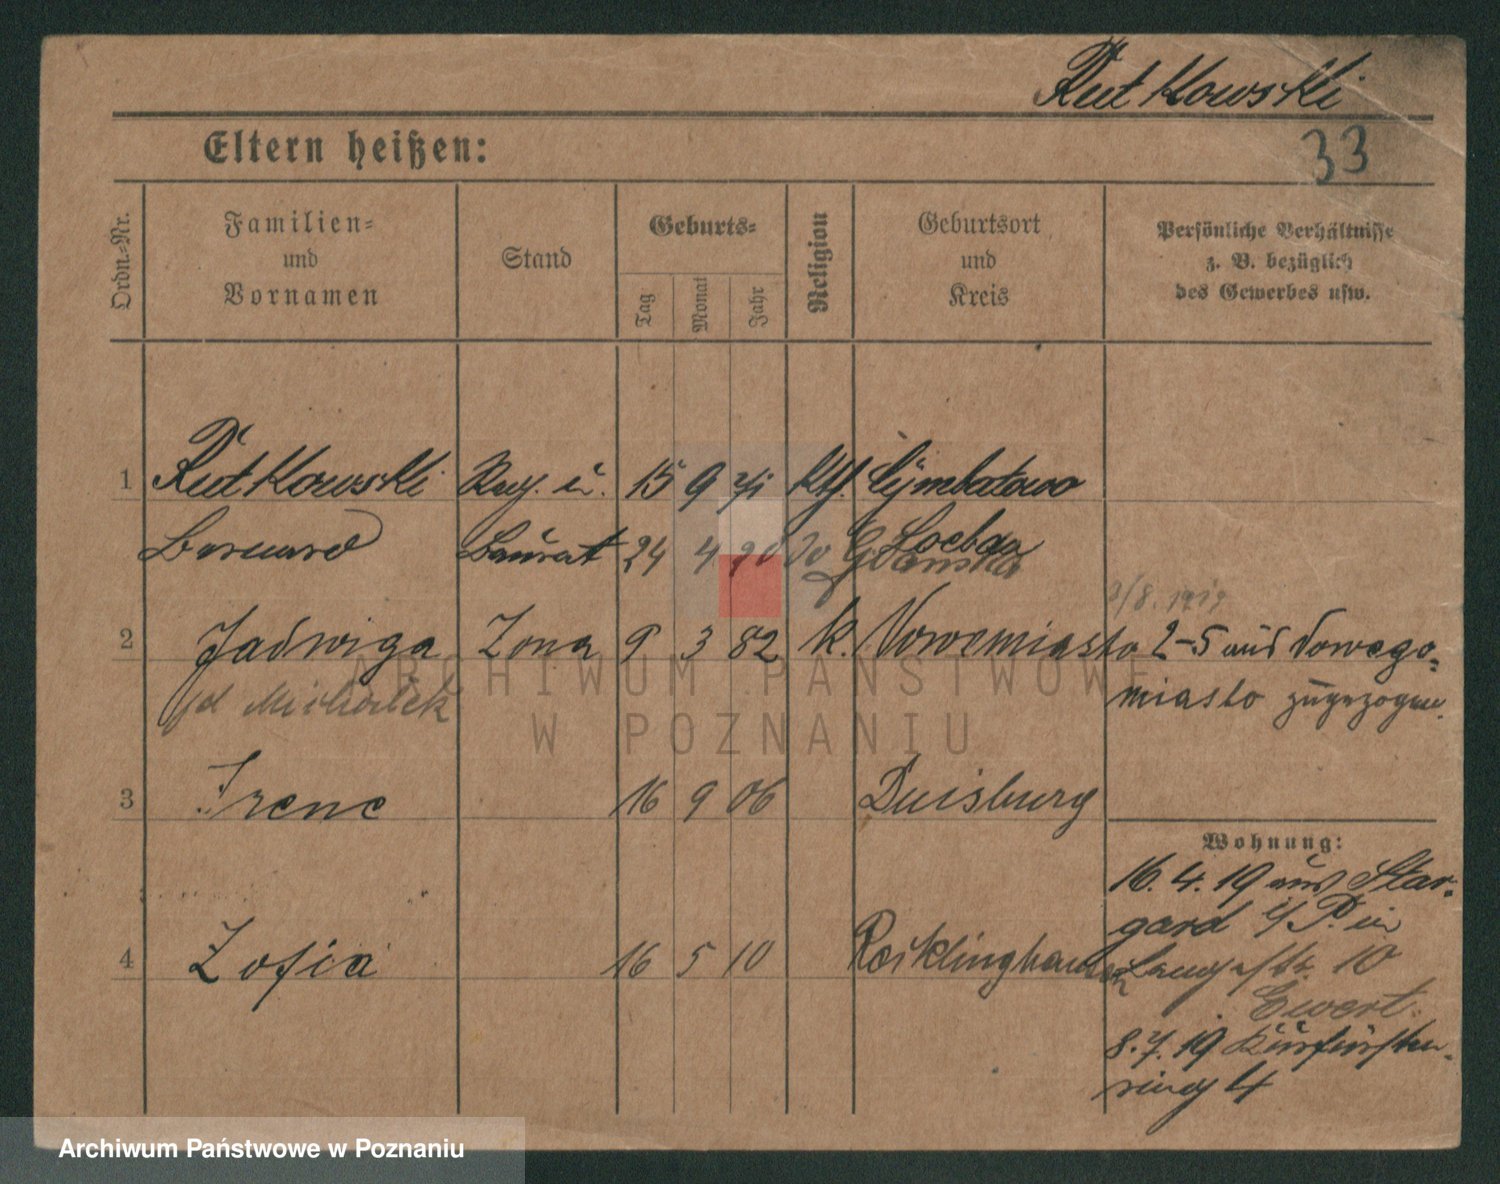 Rutkowski
33
Eltern heißen:
Ordn.-Nr.
Familien-
und
Vornamen
Stand
Geburts-
Tag
Monat
Jahr
Religion
Geburtsort
und
Kreis
Persönliche Verhältnisse
z. B. bezüglich
des Gewerbes usw.
1 Rutkowski Reg. u. 15 9 71 kth.
Bernard Baurat 24 4
Loebau
2/8. 1919
2 Jadwiga Zona 9 3 82 k. Nowemiasto 2-5 aus Nowego-
miasto zugezogen.
3 Irene 16 9 06 Duisburg
Wohnung:
16. 4. 19 aus Star-
gard i/P. in
4 Zofia 16 5 10 Recklinghausen
10
Ewert.
8. 7. 19 Kurfürsten-
ring 4
ARCHIWUM PAŃSTWOWE
W POZNANIU
Archiwum Państwowe w Poznaniu